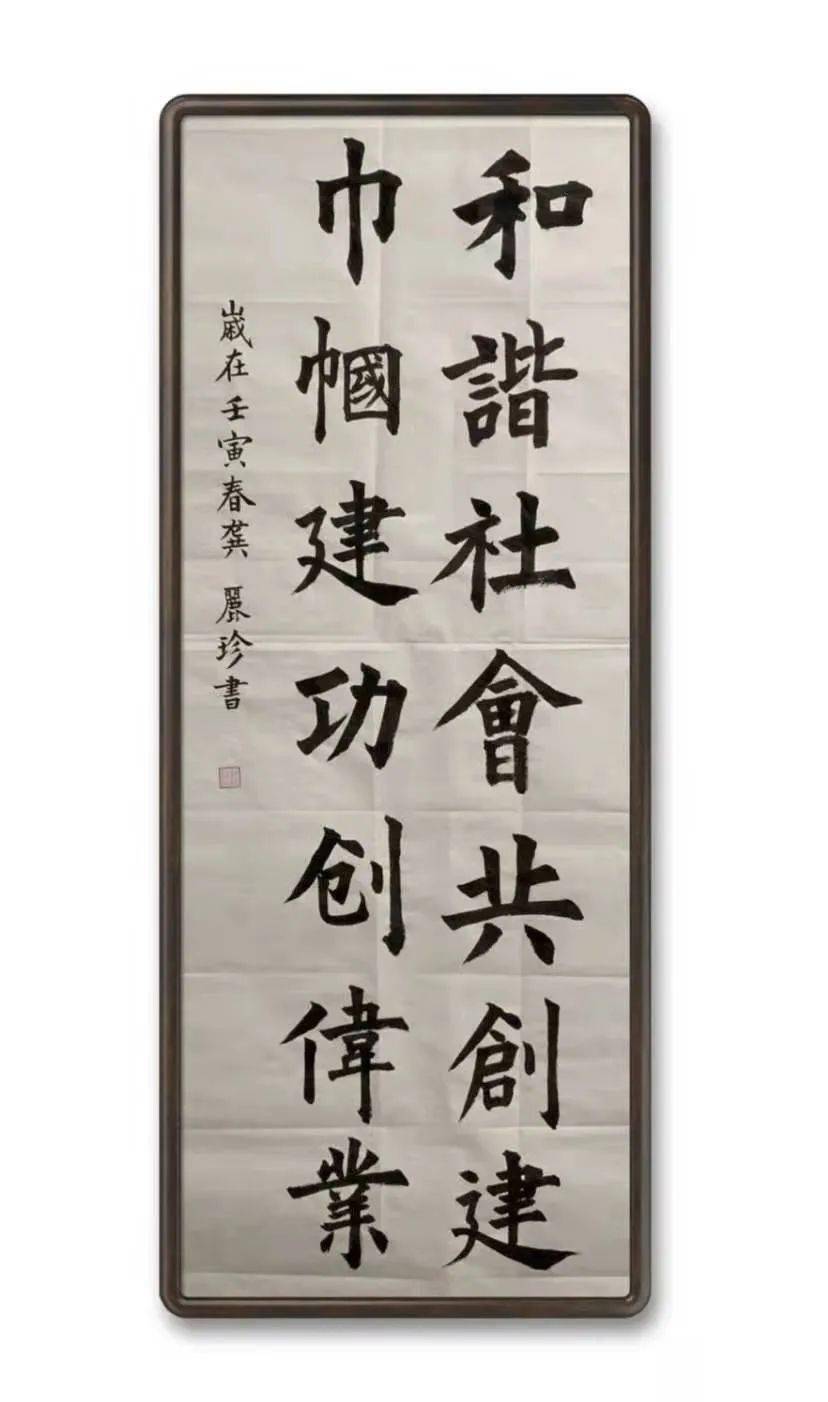 和諧社會共創建
巾帼建功创偉業
歲在壬寅春龚麗珍書